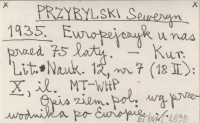 PRZYBYLSKI Seweryn
1935. Europejczyk u nas
przed 75 laty. — Kur.
Lit. Nauk. 12, nr 7 (18 II):
X, il. MT-WHP
Opis ziem. pol. wg prze-
wodnika po Europie